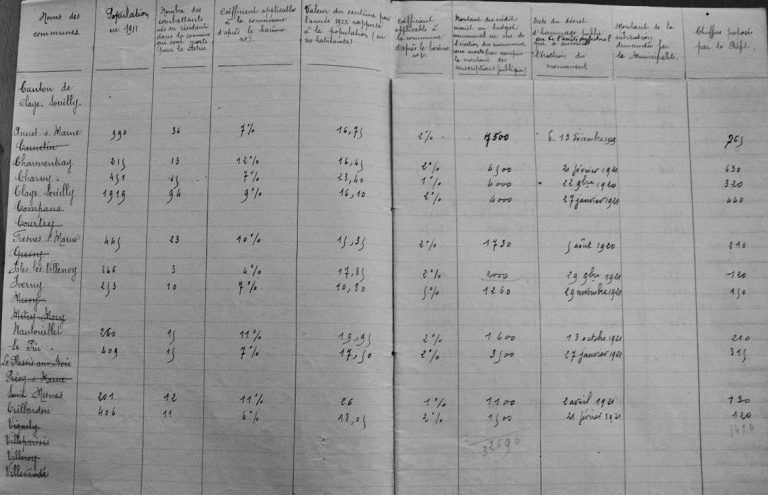 Noms des communes
Population en 1911
Nombre des combattants nés ou résidant dans la commune qui sont morts pour la Patrie
Coefficient applicable à la commune d'après le barème n°1
Valeur du centime par l'année 1922 rapporté à la population (ou 100 habitants)
Coefficient applicable à la commune d'après le barème n°2
Date du décret d'hommage public
l'érection du monument
Montant de la subvention demandée par la Municipalité
Chiffres proposés par le Préf.
Canton de
Claye-Souilly.
Annet s. Marne 390 36 7% 16,75 2% 7500 13 décembre 765
Carnetin
Charmentray 215 13 12% 16,45 2% 4500 21 février 1921 630
Charny 451 15 7% 23,40 1% 4000 22 9bre 1920 320
Claye-Souilly 1919 94 9% 16,10 2% 4000 27 janvier 1921 440
Compans
Courtry
Fresnes s. Marne 445 23 10% 15,35 2% 1730 5 août 1920 210
Gressy
Isles-les-Villenoy 246 3 4% 17,85 2% 2000 29 9bre 1921 120
Iverny 253 10 7% 10,80 5% 1260 29 novembre 1921 150
Messy
Mitry-Mory
Nantouillet 260 15 11% 19,95 2% 1600 13 octobre 1921 210
Le Pin 409 15 7% 17,50 2% 3500 27 janvier 1921 315
Le Plessis-aux-Bois
Précy s. Marne
Saint Mesmes 201 12 11% 26 1% 1100 2 avril 1921 130
Trilbardou 406 11 6% 18,05 2% 1500 21 février 1921 120
Vignely 3490
Villeparisis 32690
Villeroy
Villevaudé